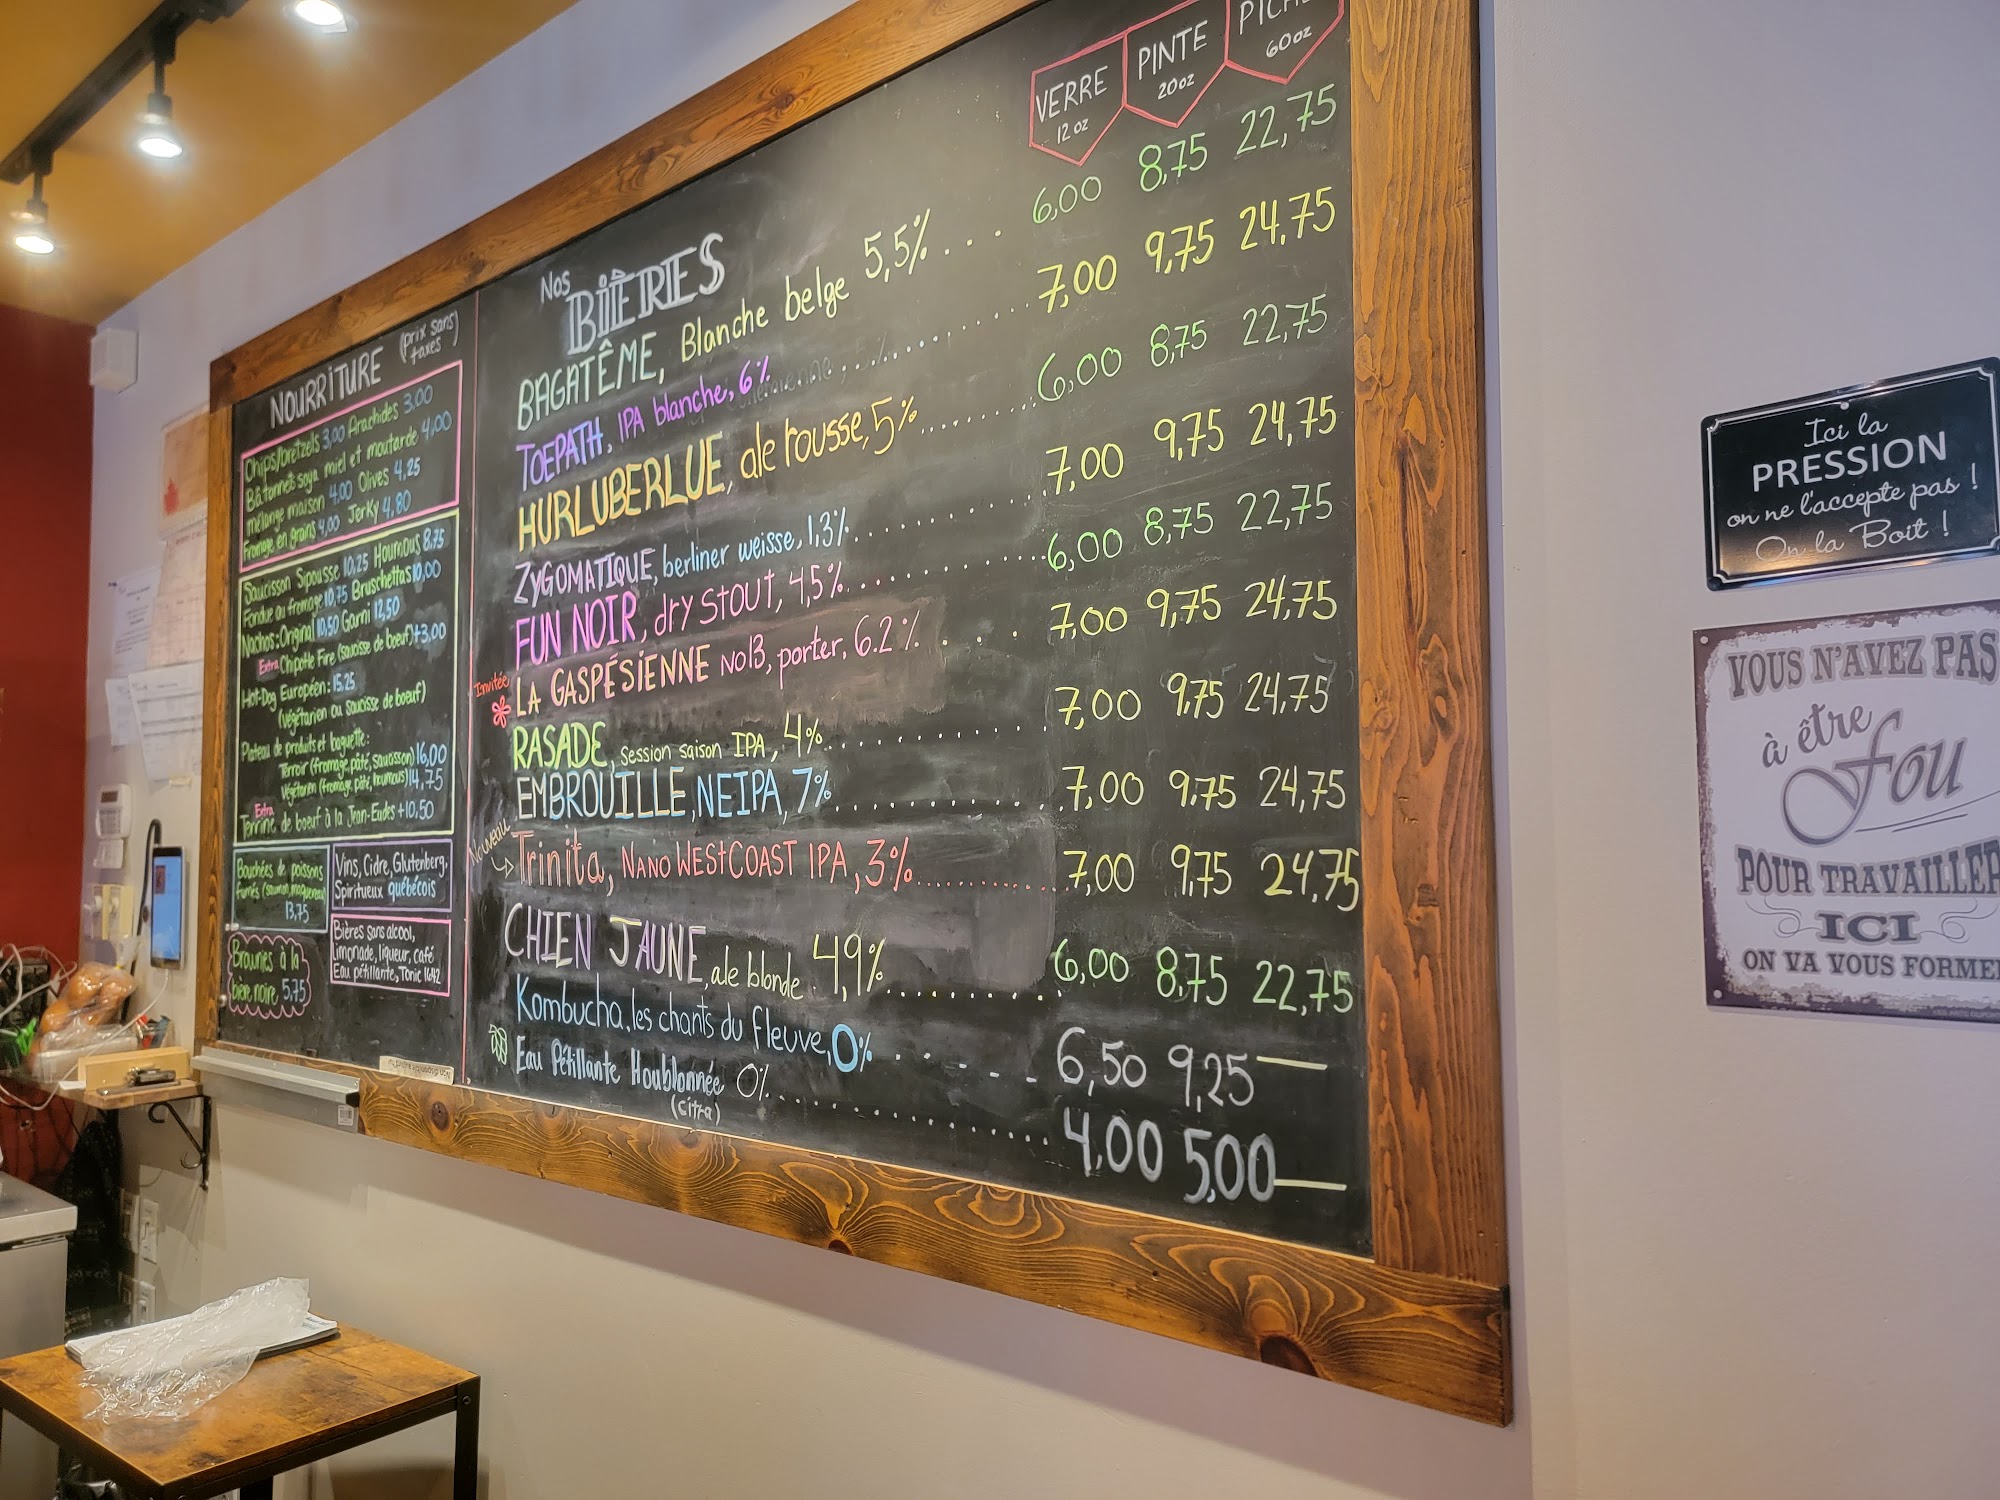 NOURRITURE (prix sans taxes)
Chips/bretzels 3,00 Arachides 3,00
Bâtonnets soya miel et moutarde 4,00
mélange maison 4,00 Olives 4,25
Fromage en grains 4,00 Jerky 4,80
Saucisson Sipousse 10,25 Houmous 8,75
Fondue au fromage 10,75 Bruschettas 10,00
Nachos: Original 10,50 Garni 12,50
Extra Chipotle Fire (saucisse de boeuf) +3,00
Hot-Dog Européen: 15.25
(végétarien ou saucisse de boeuf)
Plateau de produits et baguette:
Terroir (fromage, pâté, saucisson) 16,00
Végétarien (fromage, pâté, houmous) 14,75
Extra
Terrine de boeuf à la Jean-Eudes +10,50
Bouchées de poissons
fumés (saumon, maquereau)
13,75
Vins, Cidre, Glutenberg,
Spiritueux québécois
Bières sans alcool,
limonade, liqueur, café
Eau pétillante, Tonic 1642
Brownies à la
bière noire 5,75
Nos BIÈRES
VERRE 12 oz PINTE 20 oz 60 oz
BAGATÊME, Blanche belge 5,5% ... 6,00 8,75 22,75
TOEPATH, IPA blanche, 6% ... 7,00 9,75 24.75
HURLUBERLUE, ale rousse, 5% ... 6,00 8,75 22,75
ZYGOMATIQUE, berliner weisse, 1,3% ... 7,00 9,75 24,75
FUN NOIR, dry stout, 4,5% ... 6,00 8,75 22,75
Invitée LA GASPÉSIENNE No13, porter, 6.2% ... 7,00 9,75 24,75
RASADE, Session saison IPA, 4% ... 7,00 9,75 24,75
EMBROUILLE, NEIPA, 7% ... 7,00 9,75 24,75
Nouveau → Trinita, NANO WEStCOAST IPA, 3% ... 7,00 9,75 24,75
CHIEN JAUNE, ale blonde 4,9% ... 6,00 8,75 22,75
Kombucha, les chants du fleuve, 0% ... 6,50 9,25 —
Eau Pétillante Houblonnée 0% ... 4,00 5,00 —
(citra)
Ici la
PRESSION
on ne l'accepte pas !
On la Boit !
VOUS N'AVEZ PAS
à être
Fou
POUR TRAVAILLER
ICI
ON VA VOUS FORMER